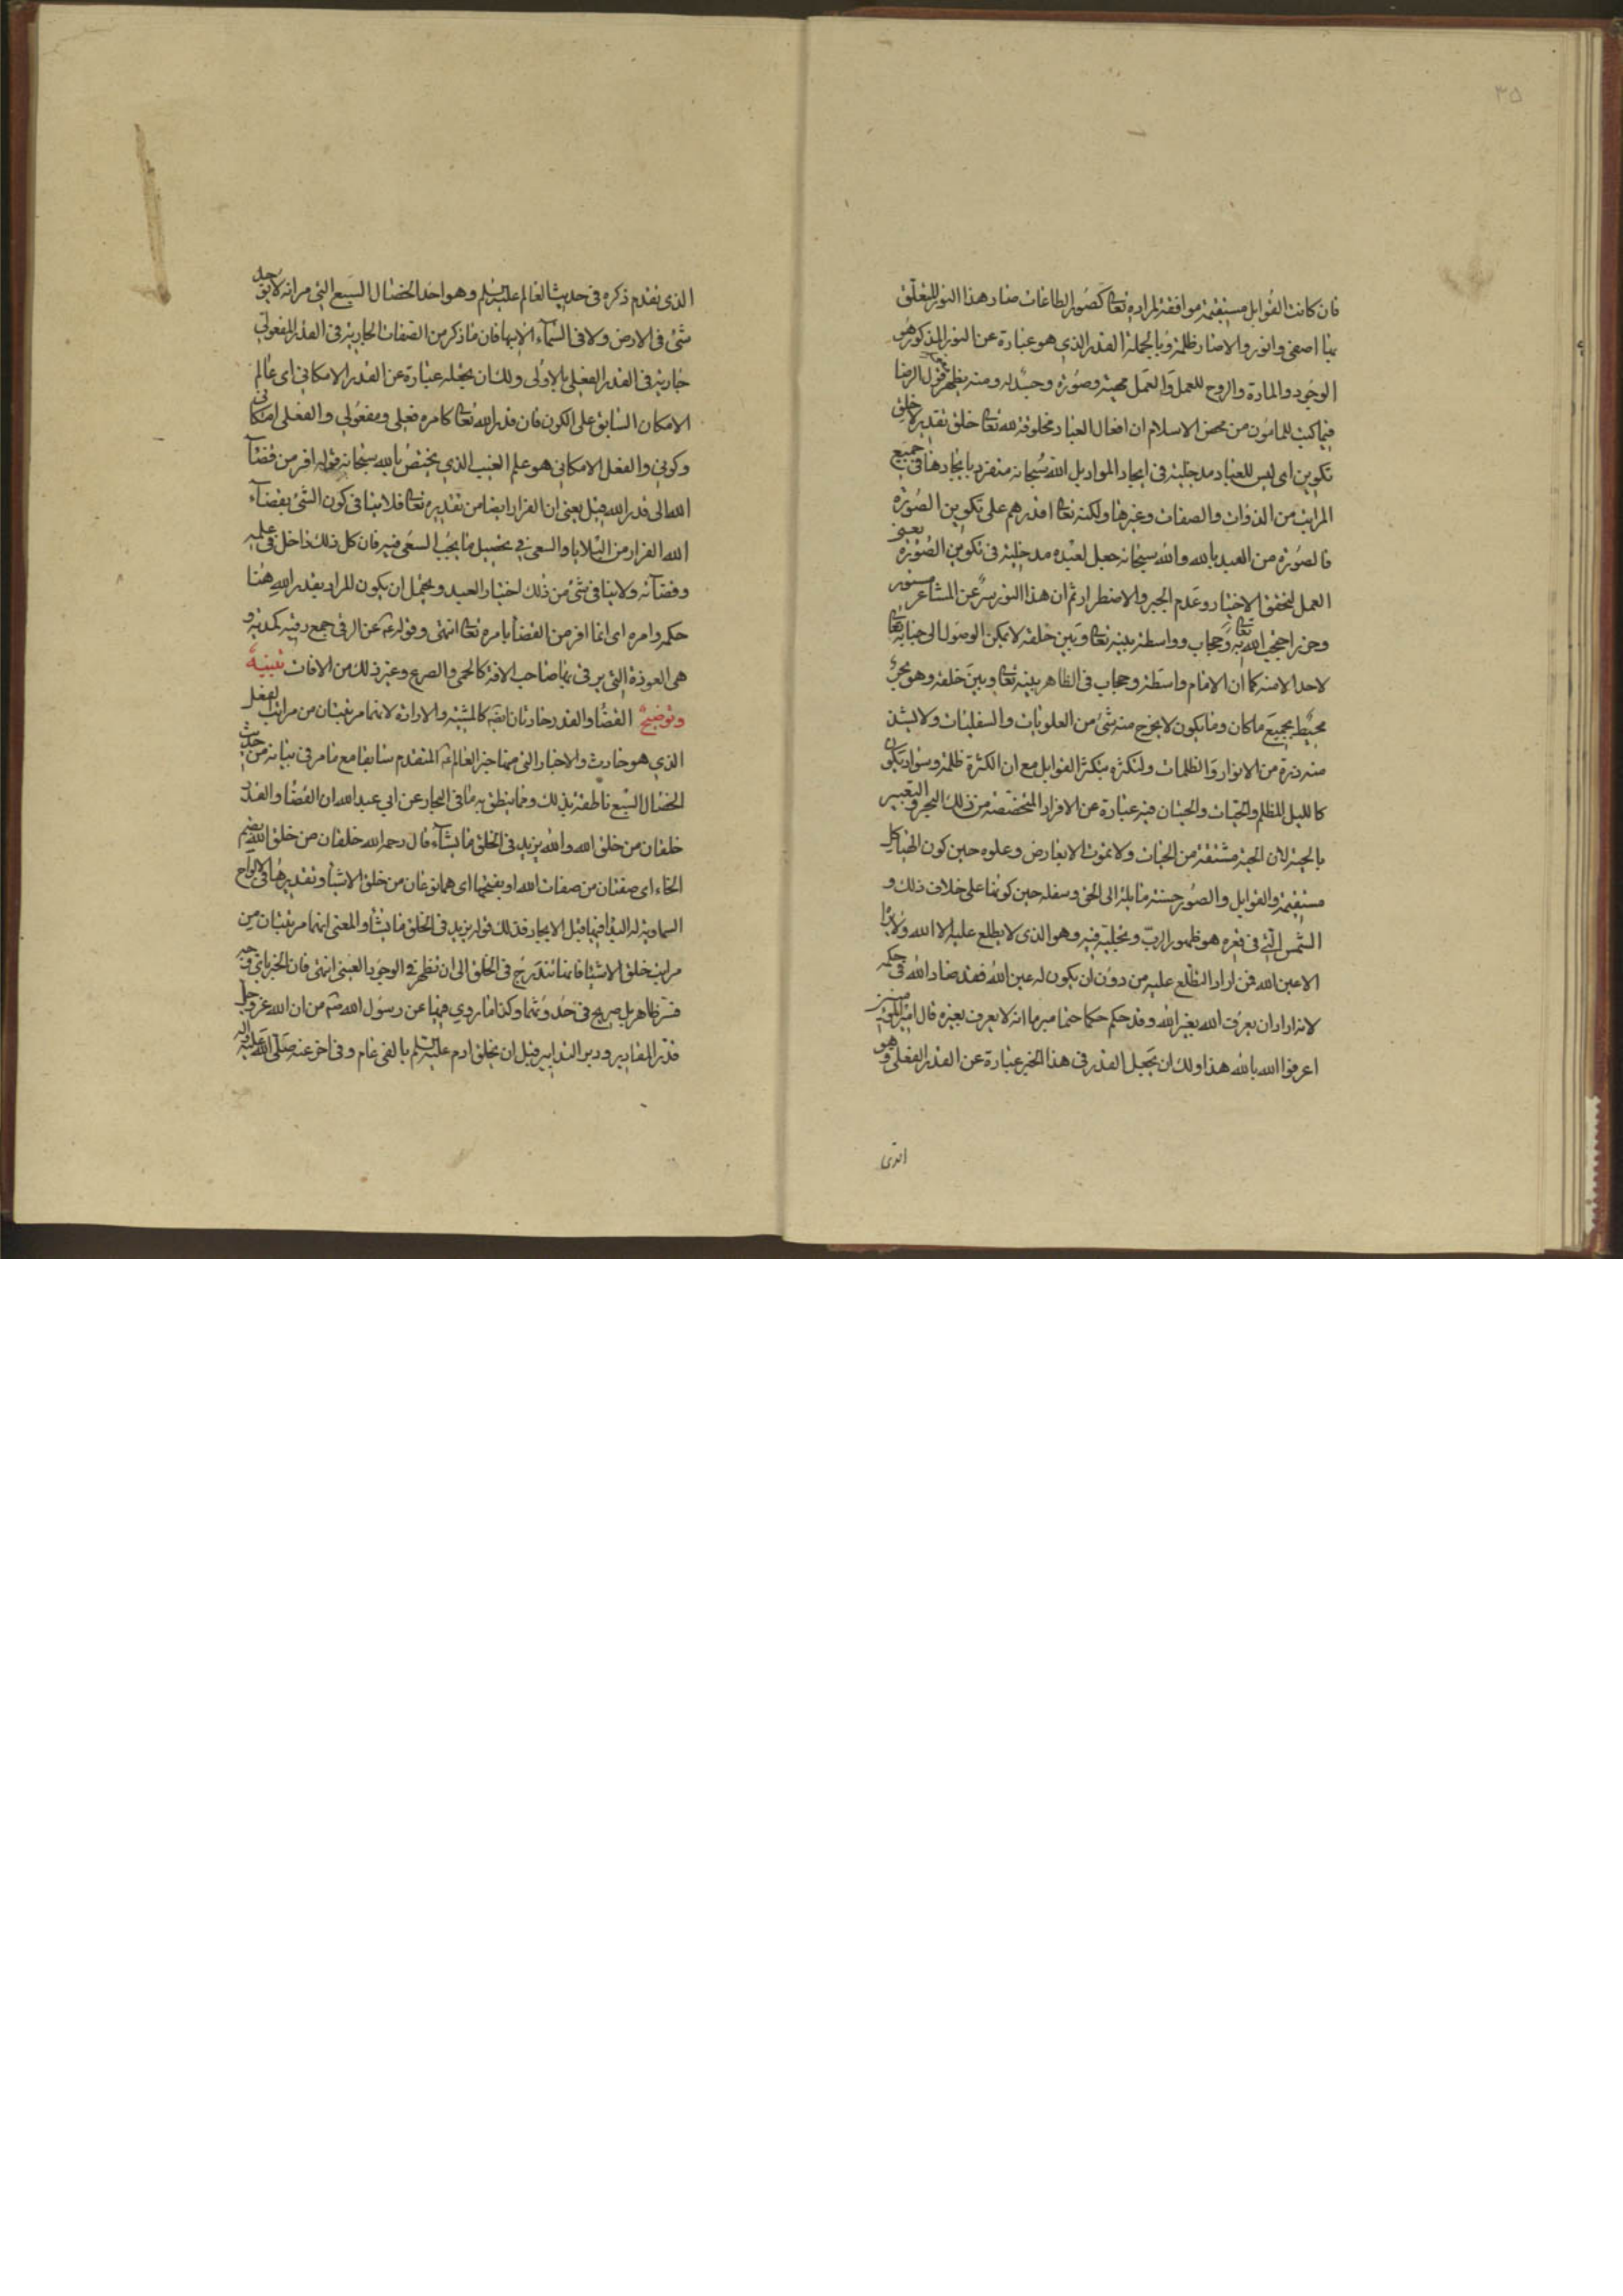 ٣٥
فان كانت القوابل مستقيمة موافقة لمراده تعالى كصور الطاعات صار هذا النور المتعلق
بها اصفى وانور والا صار ظلمة وبالجملة القدر الذي هو عبارة عن النور المذكور هو
الوجود والمادة والروح للعمل والعمل مهيته وصورة وجسد له ومنه يظهر قول الرضا
فيما كتب للمامون من محض الاسلام ان افعال العباد مخلوقة لله تعالى خلق تقدير لا خلق
تكوين اى ليس للعباد مدخلية فى ايجاد المواد بل الله سبحانه منفرد بايجادها فى جميع
المراتب من الذوات والصفات وغيرها ولكنه تعالى اقدرهم على تكوين الصورة
فالصورة من العبد بالله والله سبحانه جعل لعبده مدخلية فى تكوين الصورة يعنى
العمل لتحقق الاختيار وعدم الجبر والاضطرار ثم ان هذا النور سر عن المشاعر مستور
وحرز احتجب الله تعالى به وحجاب وواسطة بينه تعالى وبين خلقه لا يمكن الوصول الى جنابه تعالى
لاحد الا منه كما ان الامام واسطة وحجاب فى الظاهر بينه تعالى وبين خلقه وهو بحر
محيط بجميع ما كان وما يكون لا يخرج منه شئ من العلويات والسفليات ولا يشذ
منه ذرة من الانوار والظلمات ولتكثره بتكثر القوابل مع ان الكثرة ظلمة وسواد يكون
كالليل المظلم والحيات والحيتان فيه عبارة عن الافراد المتخصصة من ذلك البحر والتعبير
بالحية لان الحية مشتقة من الحيات ولا تموت الا بعارض وعلوه حين كون الهياكل
مستقيمة والقوابل والصور حسنة مايلة الى الحق وسفله حين كونها على خلاف ذلك و
الشمس التى فى قعره هو ظهور الرب وتجليه فيه وهو الذى لا يطلع عليه الا الله ولا يراه
الا عين الله فمن اراد التطلع عليه من دون ان يكون له عين الله فقد ضاد الله فى حكمه
لانه اراد ان يعرف الله بغير الله وقد حكم حكما حتما مبرما انه لا يعرف بغيره قال امير المؤمنين
اعرفوا الله بالله هذا ولك ان تجعل القدر فى هذا الخبر عبارة عن القدر الفعلى وهو
الذى تقدم ذكره فى حديث العالم عليه السلم وهو احد الخصال السبع التى مر انه لا يوجد
شئ فى الارض ولا فى السماء الا بها فان ما ذكر من الصفات الجارية فى القدر المفعولي
جارية فى القدر الفعلى بالاولى ولك ان تجعله عبارة عن القدر الامكاني اى عالم
الامكان السابق على الكون فان قدر الله تعالى كامره فعلى ومفعولي والفعلى امكانى
وكونى والفعل الامكاني هو علم الغيب الذي يختص بالله سبحانه قوله افر من قضاء
الله الى قدر الله قيل يعنى ان الفرار ايضا من تقديره تعالى فلا ينافى كون الشئ بقضاء
الله الفرار من البلايا والسعى فى تحصيل ما يجب السعى فيه فان كل ذلك داخل فى علمه
وقضائه ولا ينافى شئ من ذلك اختيار العبد ويحتمل ان يكون المراد بقدر الله هنا
حكمه وامره اى انما افر من القضا بامره تعالى انتهى وقوله عن الرقى جمع رقية كمدية و
هى العوذة التى يرقى بها صاحب الافة كالحمى والصرع وغير ذلك من الافات تنبيه
وتوضيح القضا والقدر حادثان كالمشية والارادة لانهما مرتبتان من مراتب الفعل
الذي هو حادث والاخبار التى منها خبر العالم المتقدم سابقا مع ما مر فى بيانه من حديث
الخصال السبع ناطقة بذلك ومما ينطق به ما فى البحار عن ابي عبد الله ان القضا والقدر
خلقان من خلق الله والله يزيد فى الخلق ما يشاء قال رحمه الله خلقان من خلق الله بضم
الخاء اى صفتان من صفات الله او بفتحها اى هما نوعان من خلق الاشيا وتقديرها فى الالواح
السماوية له البدا فيها قبل الايجاد فذلك قوله يزيد فى الخلق ما يشا والمعنى انهما مرتبتان من
مراتب خلق الاشيا فانها تتدرج فى الخلق الى ان تظهر فى الوجود العينى انتهى فان الخبر باي وجه
فسر ظاهر بل صريح فى حدوثهما وكذا ما روي فيها عن رسول الله من ان الله عز وجل
قدر المقادير ودبر التدابير قبل ان يخلق ادم عليه السلم بالفى عام وفى اخر عنه صلى الله عليه واله